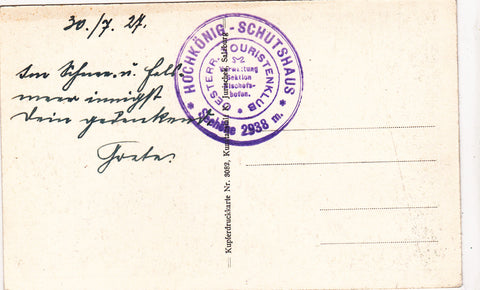 30./7. 27.
Im Schnee u. Fels
meer innigst
Dein gedenkend
Grete.
* HOCHKÖNIG-SCHUTSHAUS *
OESTERR. TOURISTENKLUB
Verwaltung
Sektion
Bischofs-
hofen.
Seehöhe 2938 m.
Kupferdruckkarte Nr. 3082, Jurischek, Salzburg